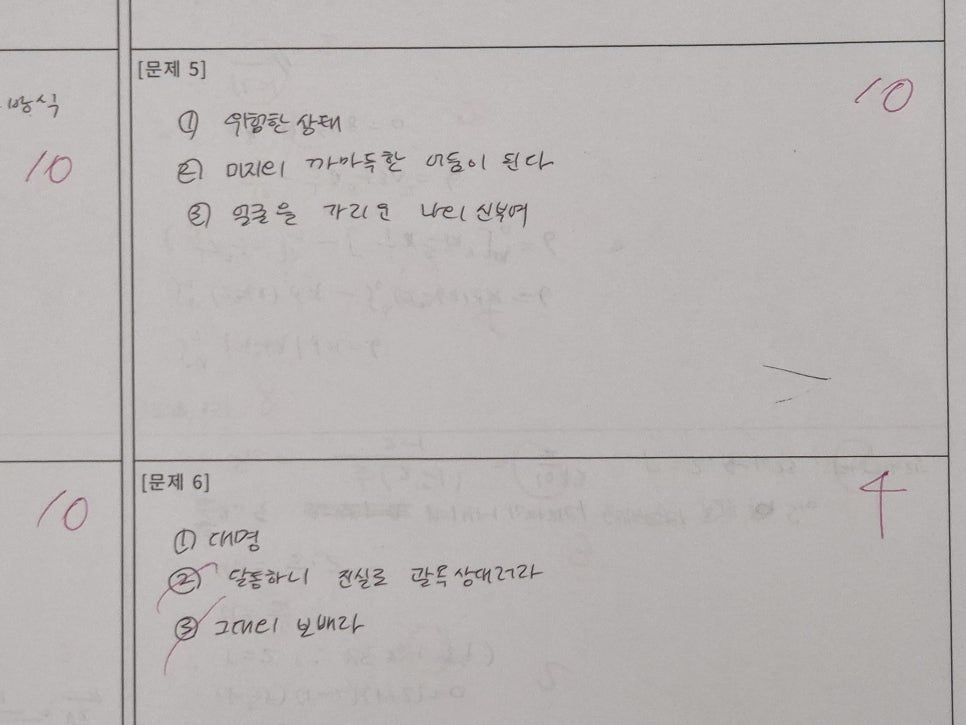 방식
10
10
[문제 5]
10
① 위험한 상태
② 미지의 까마득한 어둠이 된다
③ 얼굴을 가리운 나의 신부여
[문제 6]
4
① 대명
② 달통하니 진실로 괄목상대러라
③ 그대의 보배라